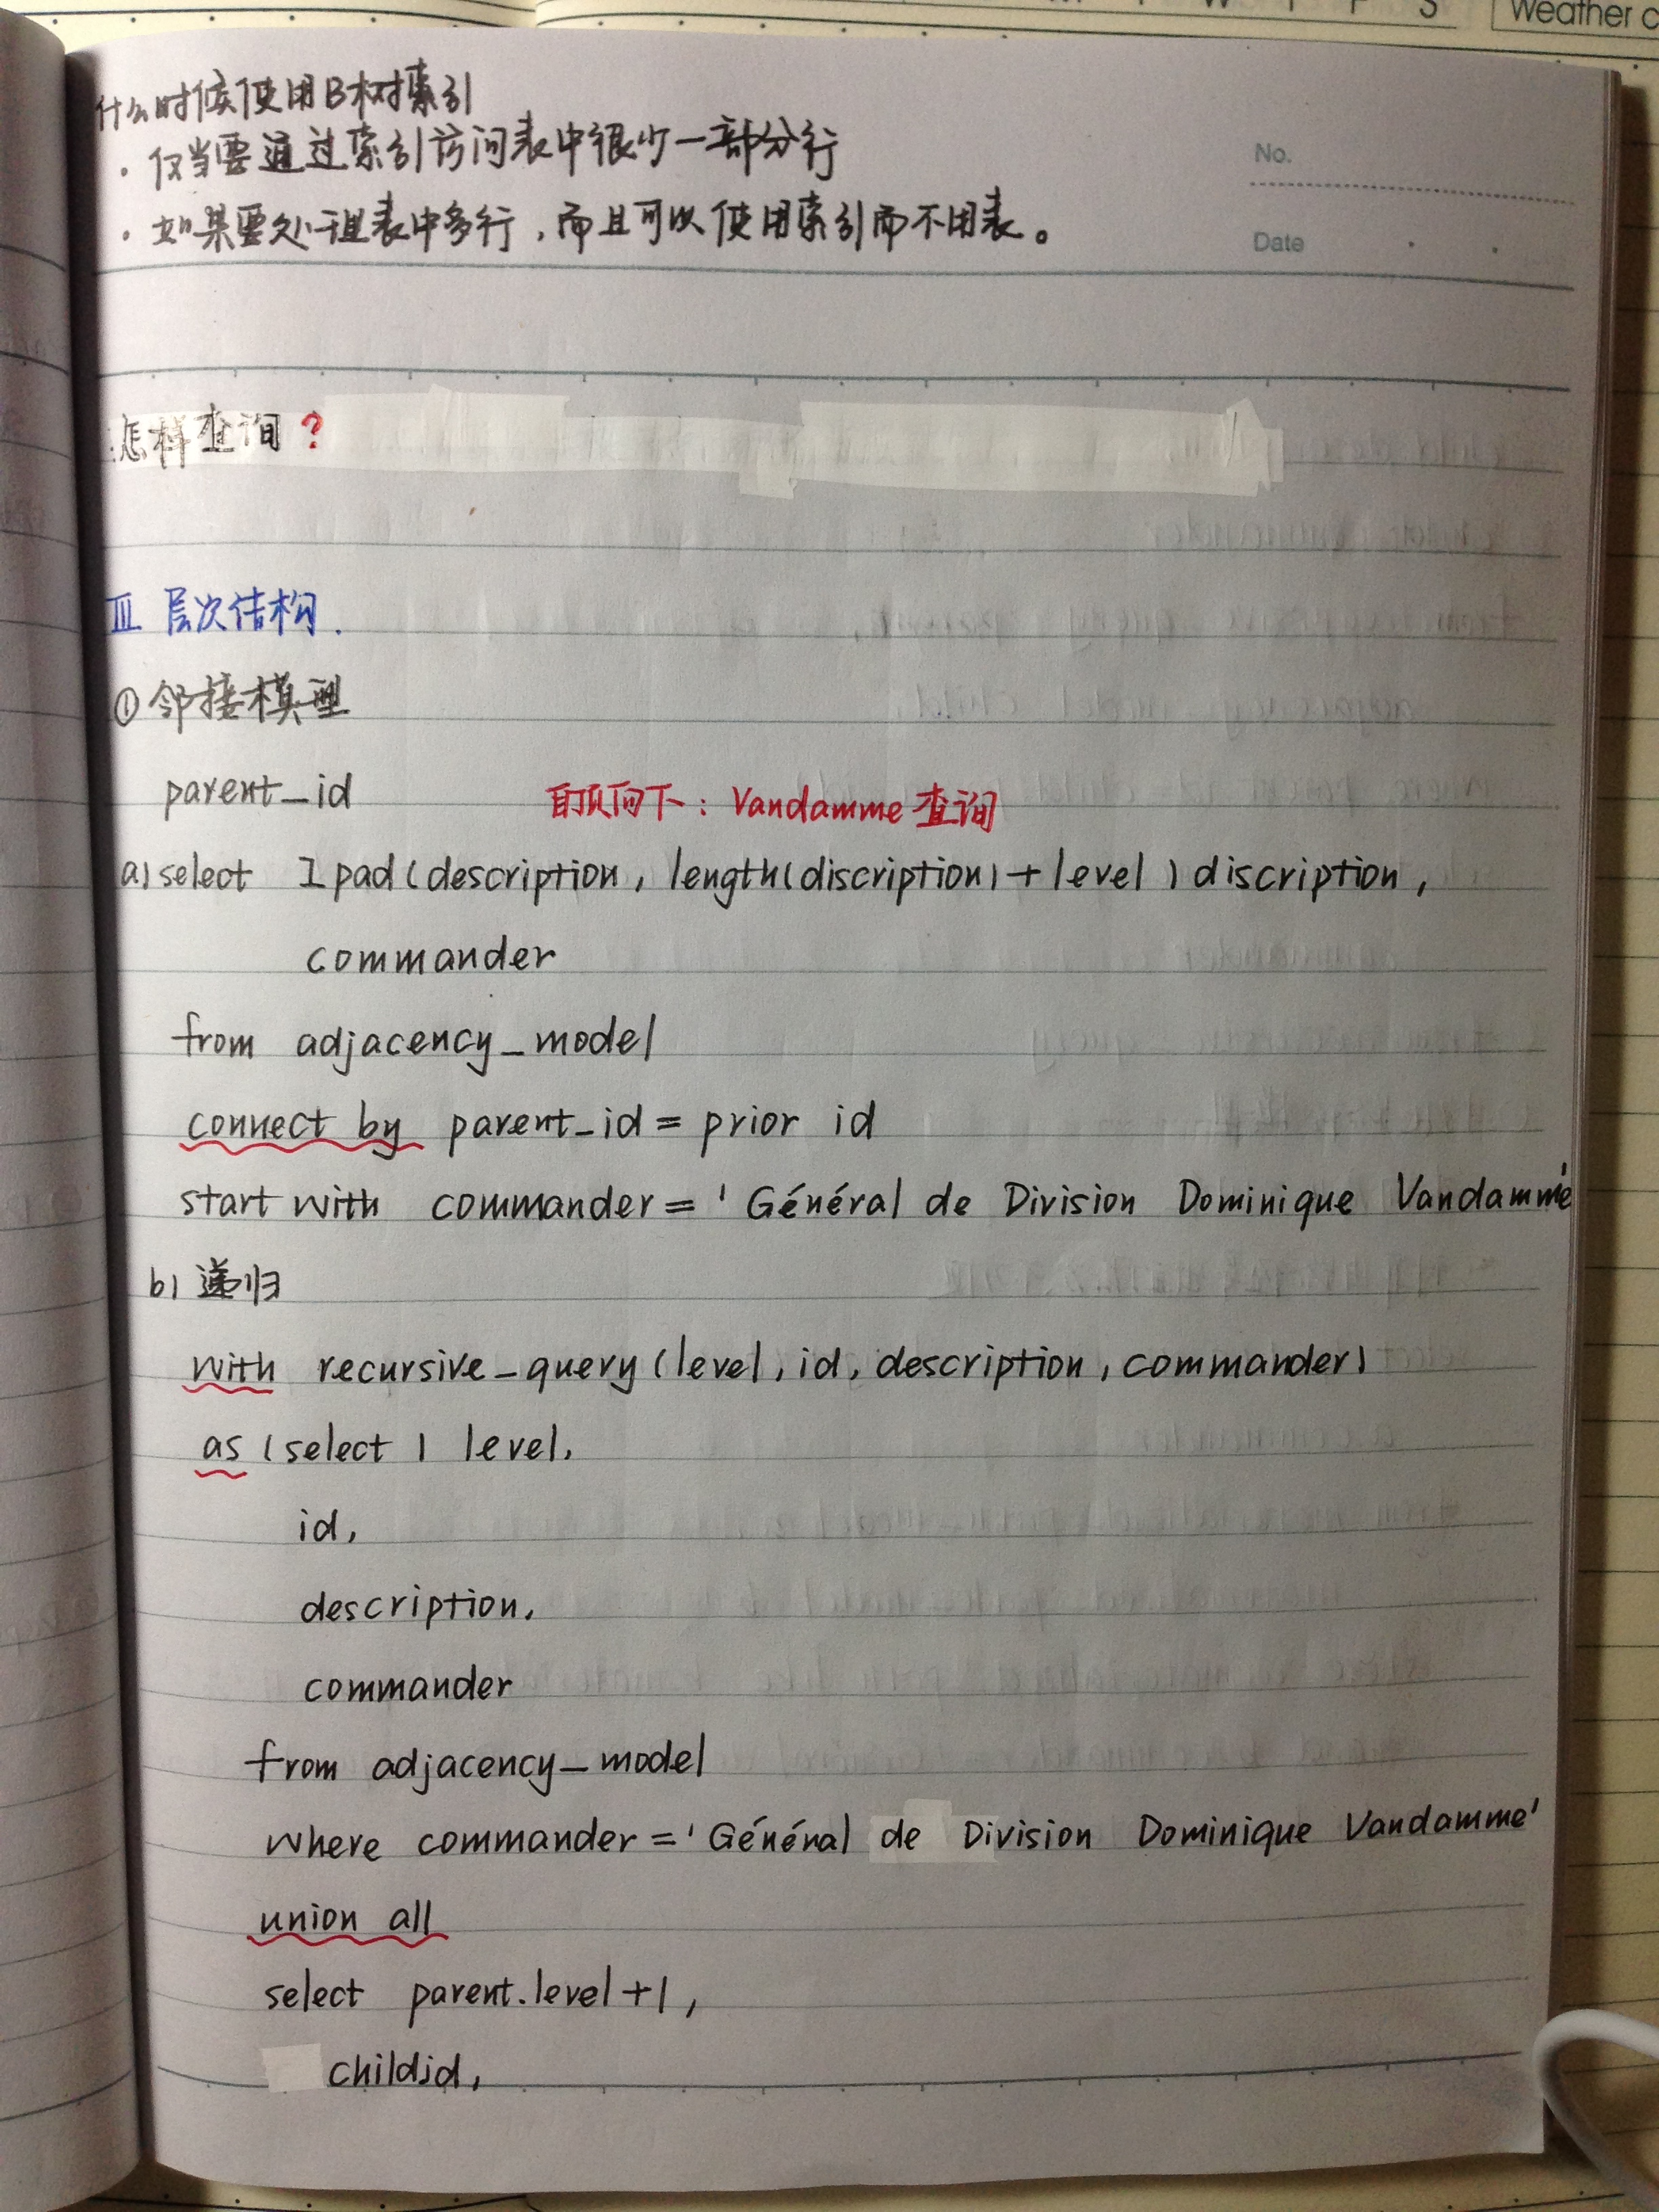 Weather
什么时候使用B树索引
· 仅当要通过索引访问表中很少一部分行
No.
· 如果要处理表中多行，而且可以使用索引而不用表。
Date
怎样查询？
Ⅲ 层次结构.
① 邻接模型
parent_id 自顶向下：Vandamme 查询
a) select lpad (description, length(discription)+level ) discription,
commander
from adjacency_model
connect by parent_id = prior id
start with commander = 'Général de Division Dominique Vandamme'
b) 递归
with recursive_query (level, id, description, commander)
as (select 1 level,
id,
description,
commander
from adjacency_model
where commander = 'Général de Division Dominique Vandamme'
union all
select parent.level+1,
child.id,